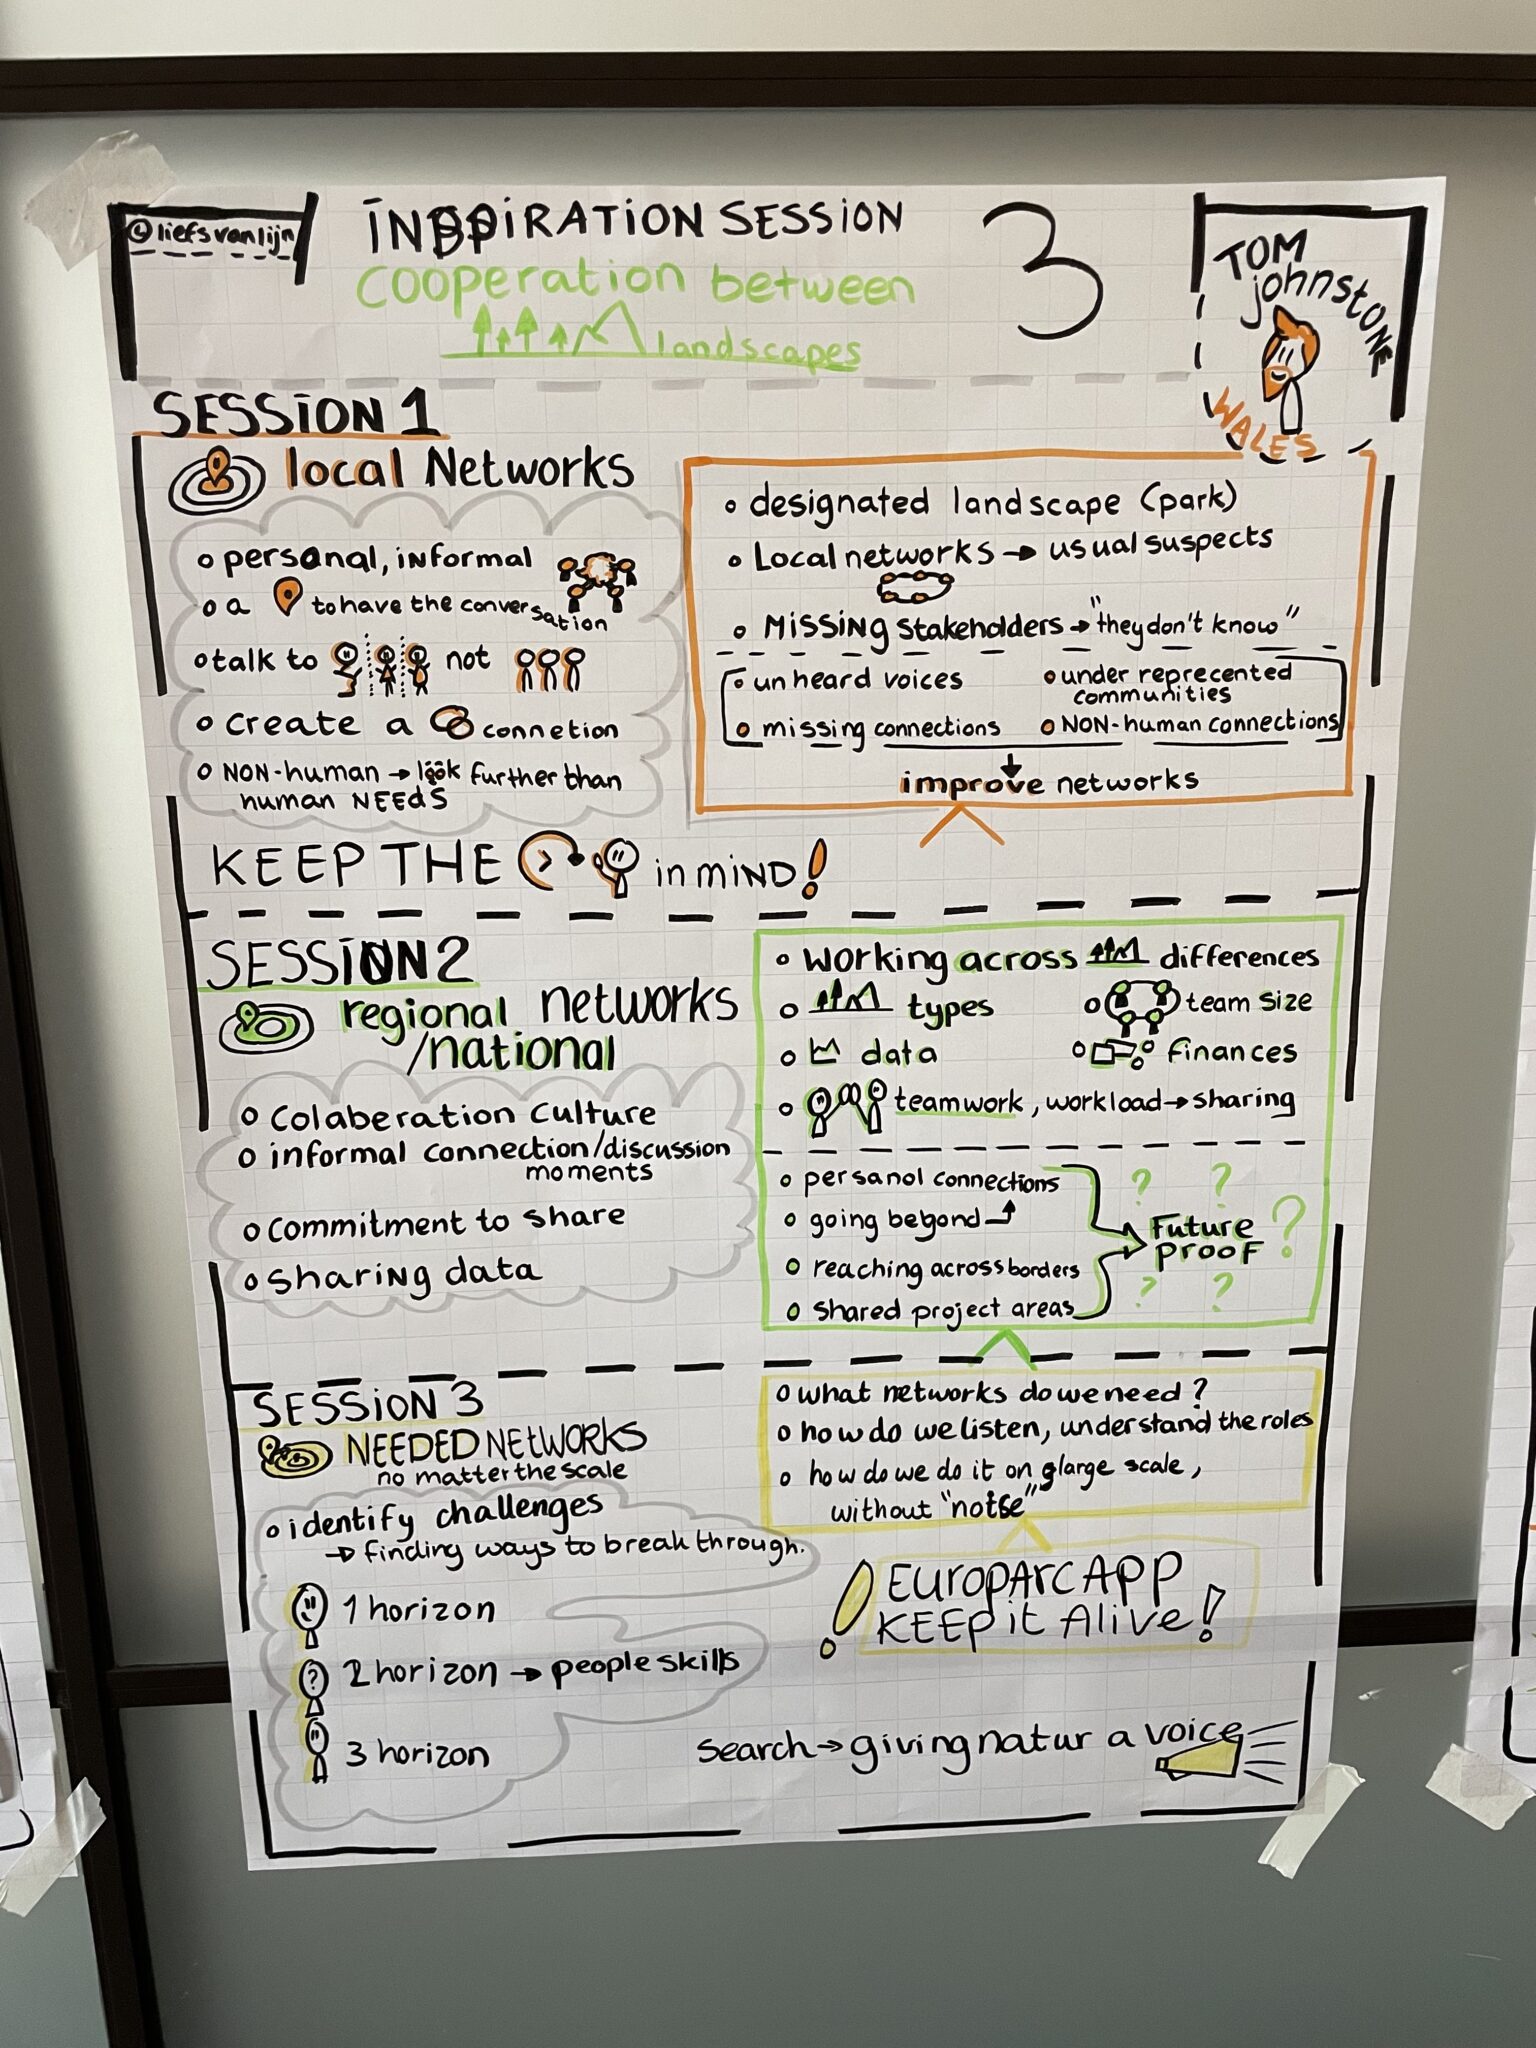 © liefsvanlijn
INSPIRATION SESSION 3
cooperation between
landscapes
TOM johnstone
WALES
SESSION 1
local Networks
o personal, informal
o a to have the conversation
o talk to not
o create a connetion
o NON-human → look further than
human NEEdS
o designated landscape (park)
o Local networks → usual suspects
o MISSING stakeholders → "they don't know"
o unheard voices
o under reprecented
communities
o missing connections
o NON-human connections
improve networks
KEEP THE in MIND!
SESSION 2
regional networks
/national
o colaberation culture
o informal connection/discussion
moments
o commitment to share
o sharing data
o working across differences
o types
o team size
o data
o finances
o teamwork, workload → sharing
o persanol connections
o going beyond
o reaching across borders
o shared project areas
? ?
Future
proof ?
? ?
SESSION 3
NEEDED NETWORKS
no matter the scale
o identify challenges
→ finding ways to break through.
1 horizon
? 2 horizon → people skills
3 horizon
o what networks do we need?
o how do we listen, understand the roles
o how do we do it on large scale,
without "noise"
! EUROPARC APP
KEEP it Alive!
Search → giving natur a voice